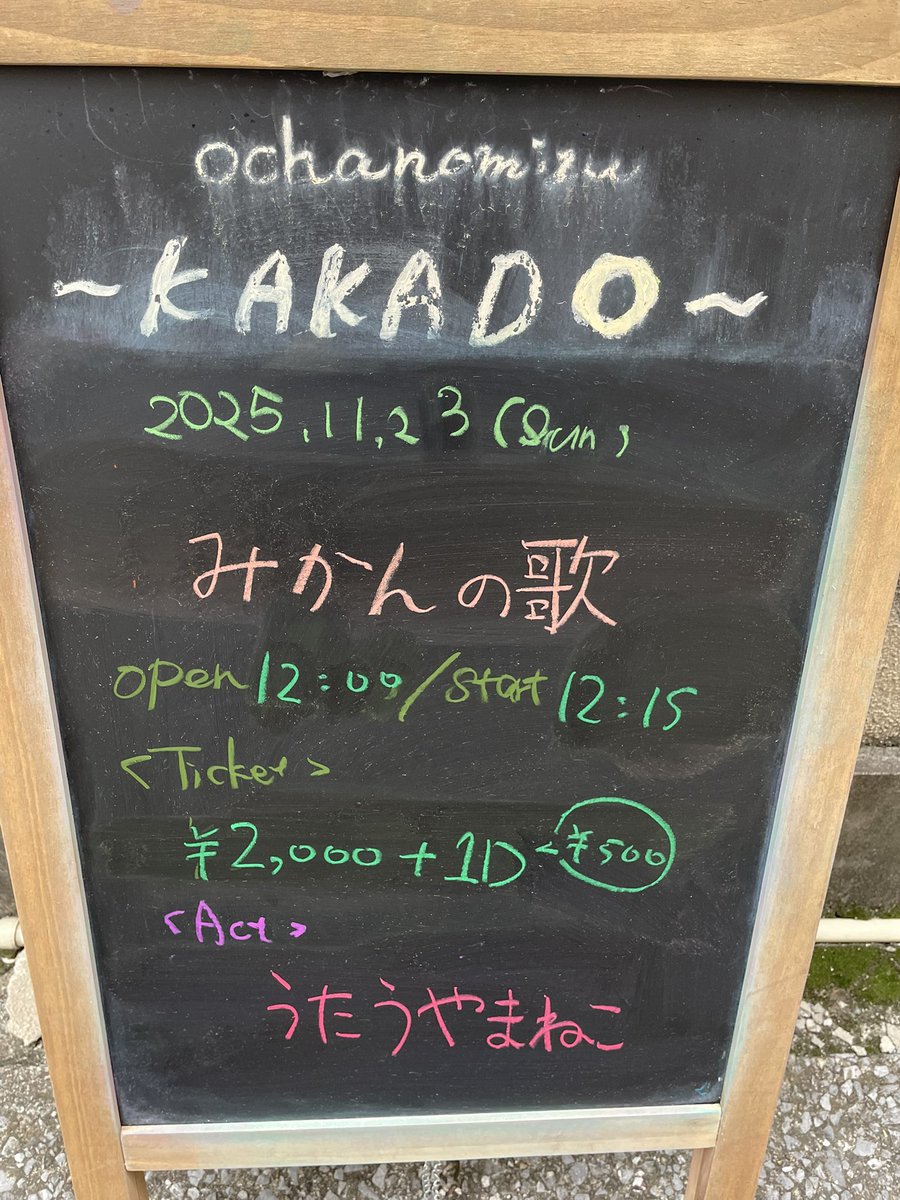 ochanomizu
~KAKADO~
2025.11.23(Sun)
みかんの歌
open 12:00/start 12:15
<Ticket>
¥2,000+1D ¥500
<Act>
うたうやまねこ